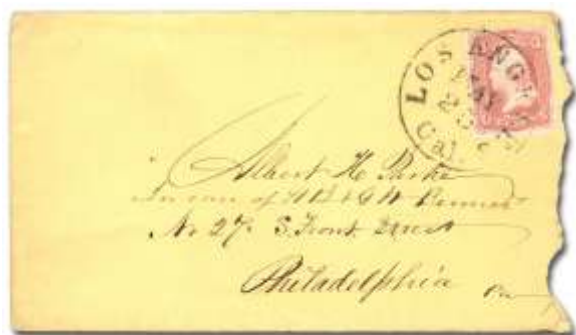 LOS ANGELES
MAY
Cal.
Albert H. Parke
In care of
No 27. S. Front Street
Philadelphia Pa